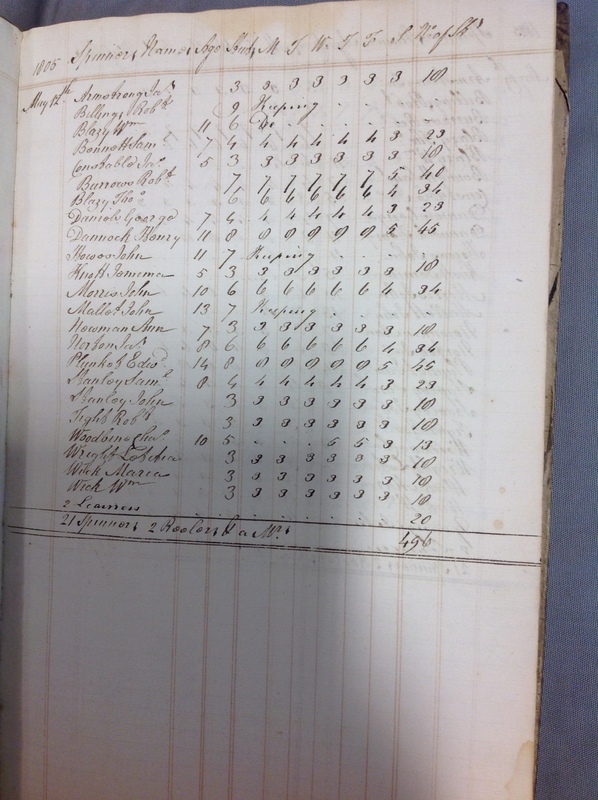 1805 Spinners Names Age Stint M T W T F S No of Sks
May 12th Armstrong Jas 3 3 3 3 3 3 3 18
Billings Robt 9 Keeping . . . .
Blazy Wm 11 6 Do . . . . .
Bennett Saml 7 4 4 4 4 4 4 3 23
Constable Jas 5 3 3 3 3 3 3 3 18
Burrows Robt 7 7 7 7 7 7 5 40
Blazy Thos 6 6 6 6 6 6 4 34
Daniels George 7 4 4 4 4 4 4 3 23
Dannock Henry 11 8 8 8 8 8 8 5 45
Howes John 11 7 Keeping . . . .
Knott Jemima 5 3 3 3 3 3 3 3 18
Morris John 10 6 6 6 6 6 6 4 34
Mallet John 13 7 Keeping . . . .
Newman Ann 7 3 3 3 3 3 3 3 18
Norton Jas 8 6 6 6 6 6 6 4 34
Plunket Edwd 14 8 8 8 8 8 8 5 45
Stanley Saml 8 4 4 4 4 4 4 3 23
Stanley John 3 3 3 3 3 3 3 18
Tight Robt 3 3 3 3 3 3 3 18
Woodbine Chas 10 5 . . . 5 5 3 13
Wright Letitia 3 3 3 3 3 3 3 18
Wick Maria 3 3 3 3 3 3 3 18
Wick Wm 3 3 3 3 3 3 3 18
2 Learners . . . . . . . . 20
21 Spinners 2 Reelers & a Mrs 496